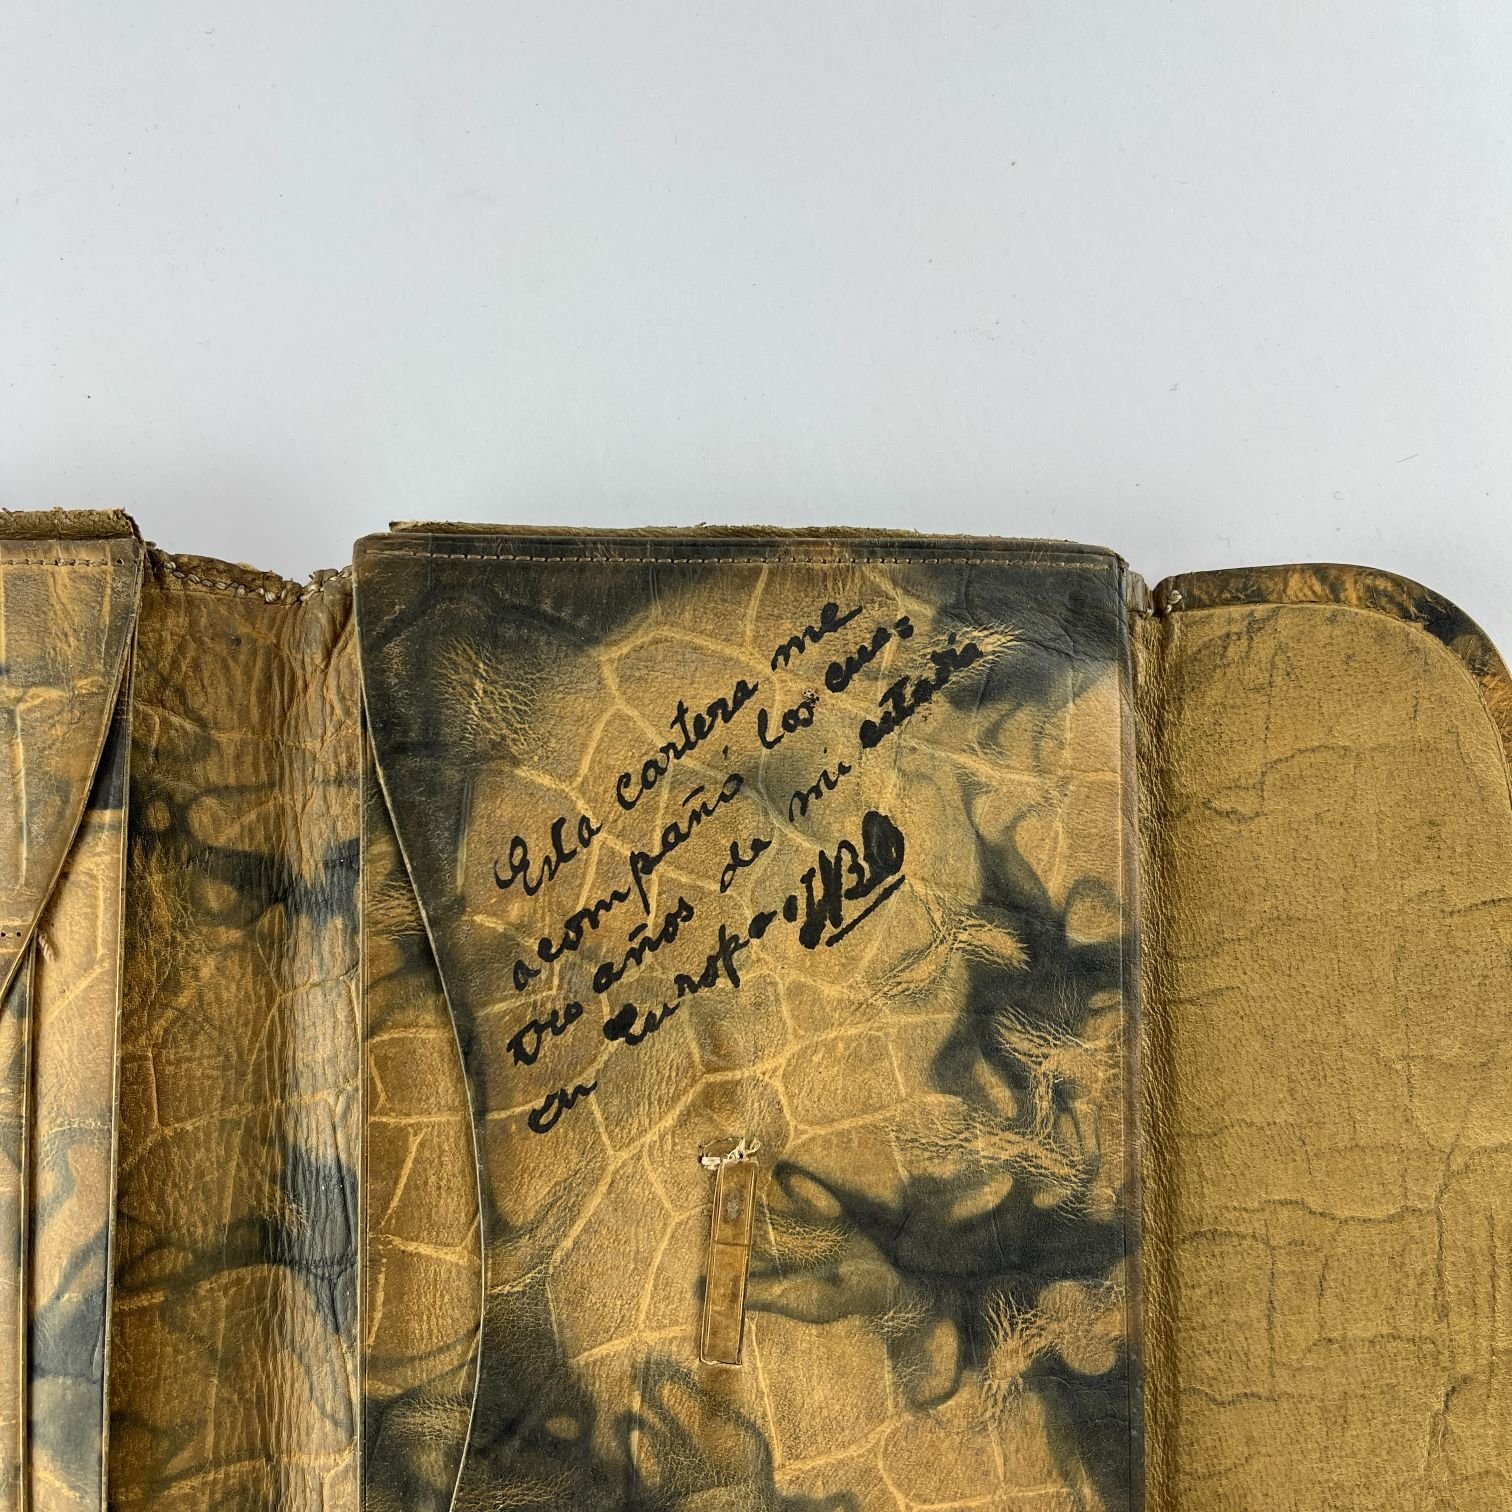 Esta cartera me
acompañó los cua=
tro años de mi estadía
en Europa. JBO